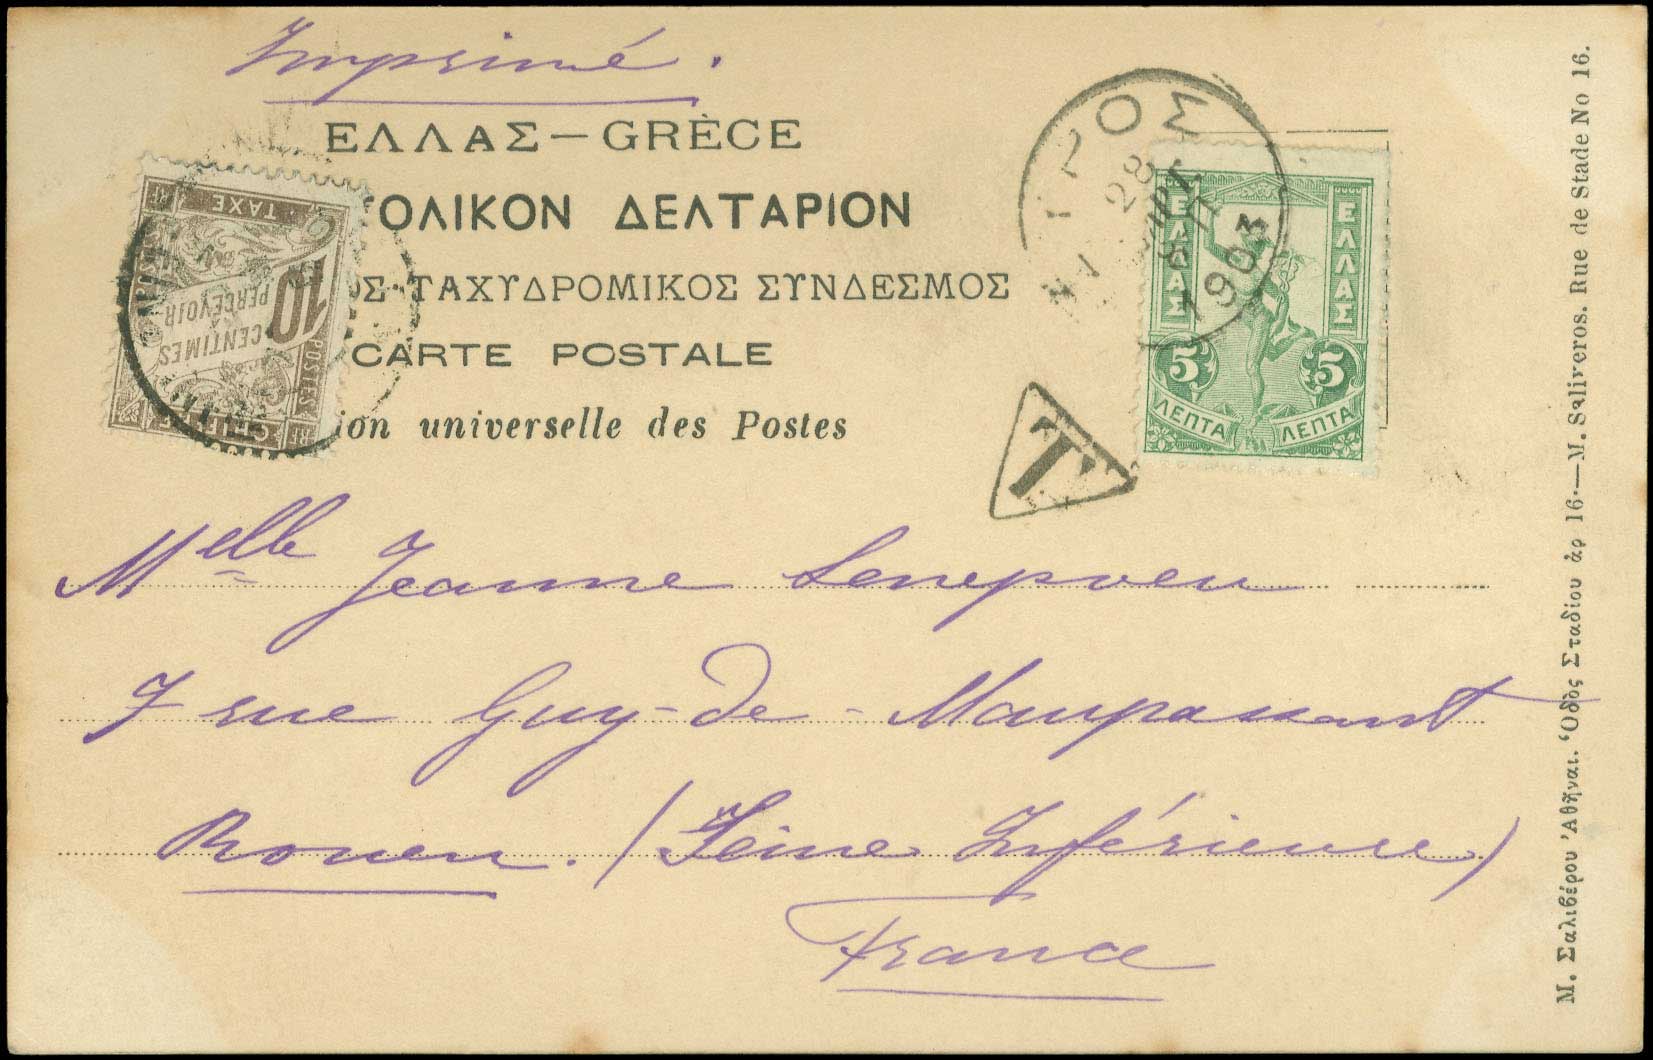 Imprimé.
ΕΛΛΑΣ — GRÈCE
ΟΛΙΚΟΝ ΔΕΛΤΑΡΙΟΝ
ΟΣ ΤΑΧΥΔΡΟΜΙΚΟΣ ΣΥΝΔΕΣΜΟΣ
CARTE POSTALE
ion universelle des Postes
10 CENTIMES
À
PERCEVOIR
TAXE
POSTES
CHIFFRE
28
1903
ΕΛΛΑΣ
ΕΛΛΑΣ
5 5
ΛΕΠΤΑ ΛΕΠΤΑ
T
Melle Jeanne Lenepveu
7 rue Guy-de-Maupassant
Rouen. (Seine Inférieure)
France
Μ. Σαλιβέρου Ἀθῆναι. Ὁδὸς Σταδίου ἀρ 16.—M. Saliveros. Rue de Stade No 16.